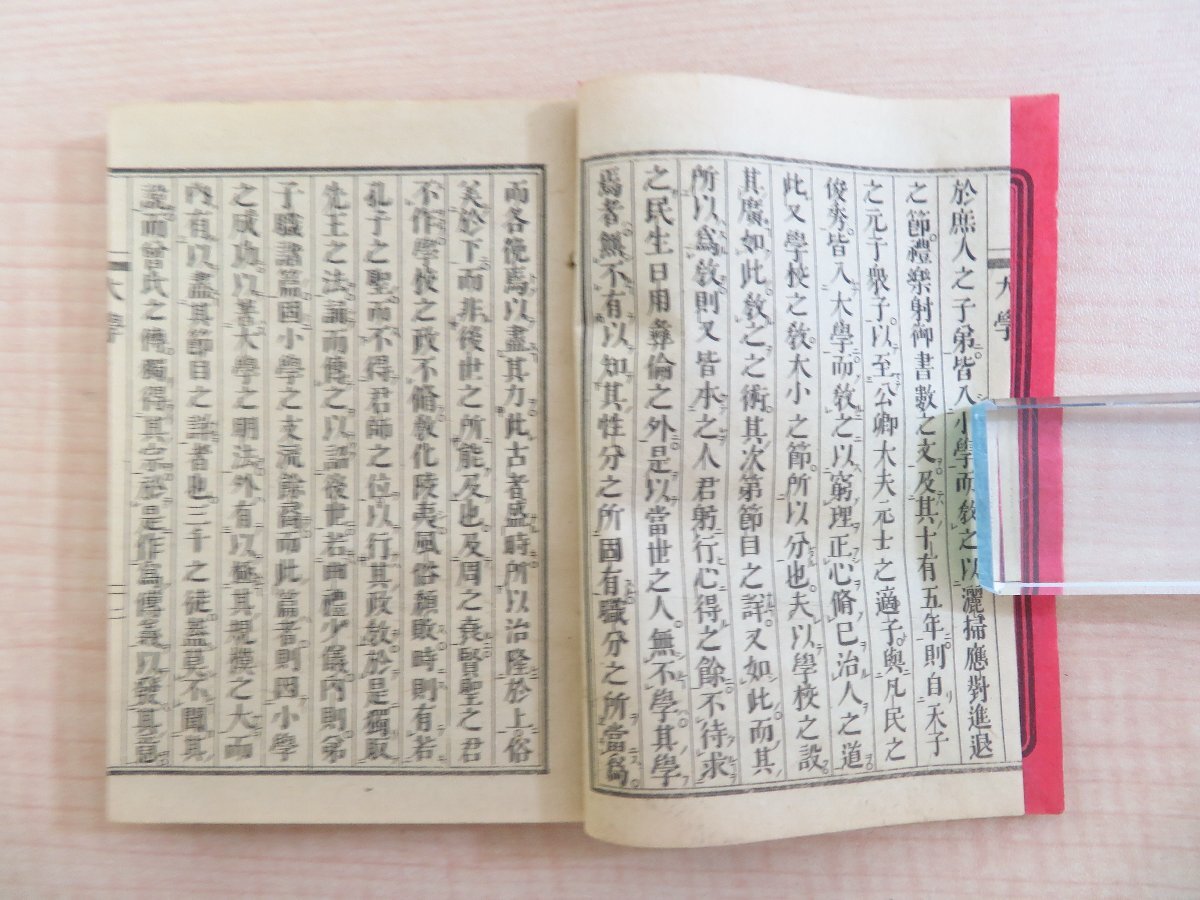 於庶人之子弟皆入小學而敎之以灑掃應對進退
之節禮樂射御書數之文及其十有五年則自天子
之元子衆子以至公卿大夫元士之適子與凡民之
俊秀皆入大學而敎之以窮理正心脩己治人之道
此又學校之敎大小之節所以分也夫以學校之設
其廣如此敎之之術其次第節目之詳又如此而其
所以爲敎則又皆本之人君躬行心得之餘不待求
之民生日用彝倫之外是以當世之人無不學其學
焉者無不有以知其性分之所固有職分之所當爲
大學
而各俛焉以盡其力此古者盛時所以治隆於上俗
美於下而非後世之所能及也及周之衰賢聖之君
不作學校之政不脩敎化陵夷風俗頹敗時則有若
孔子之聖而不得君師之位以行其政敎於是獨取
先王之法誦而傳之以詔後世若曲禮少儀內則弟
子職諸篇固小學之支流餘裔而此篇者則因小學
之成功以著大學之明法外有以極其規模之大而
內有以盡其節目之詳者也三千之徒蓋莫不聞其
說而曾氏之傳獨得其宗於是作爲傳義以發其意
大學
二